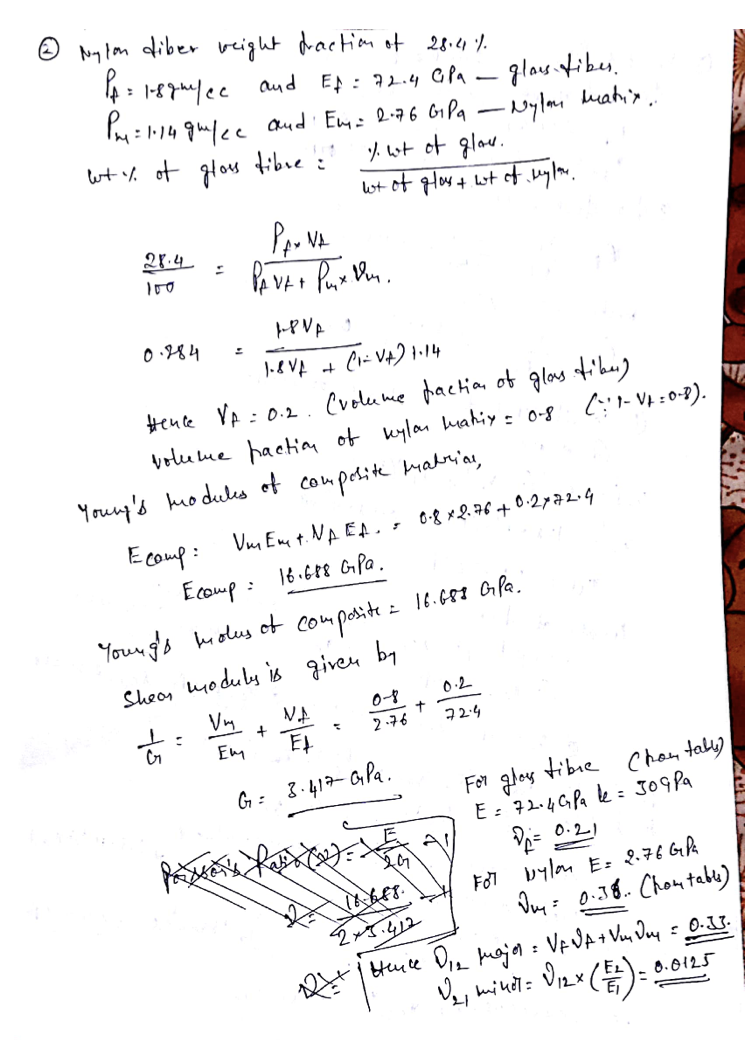 ② Nylon fiber weight fraction of 28.4 %.
ρf = 1.8 gm/cc and Ef = 72.4 GPa — glass fiber.
ρm = 1.14 gm/cc and Em = 2.76 GPa — Nylon matrix.
wt % of glass fibre = % wt of glass. / wt of glass + wt of nylon.
28.4 / 100 = ρf × Vf / ρf Vf + ρm × Vm.
0.284 = 1.8 Vf / 1.8 Vf + (1 - Vf) 1.14
Hence Vf = 0.2. (volume fraction of glass fiber)
volume fraction of nylon matrix = 0.8 (∵ 1 - Vf = 0.8).
Young's modulus of composite matrias,
E comp = Vm Em + Vf Ef. = 0.8 × 2.76 + 0.2 × 72.4
E comp = 16.688 GPa.
Young's molus of composite = 16.688 GPa.
Shear modulus is given by
1/G = Vm/Em + Vf/Ef = 0.8/2.76 + 0.2/72.4
G = 3.417 GPa.
For glass fibre (from table)
E = 72.4 GPa k = 30 GPa
νf = 0.21
For nylon E = 2.76 GPa
νm = 0.36. (from table)
Poisson's Ratio (ν) = E/2G - 1
ν = 16.688 / 2 × 3.417 - 1
ν =
Hence ν12 major = Vf νf + Vm νm = 0.33.
ν21 minor = ν12 × (E2/E1) = 0.0125